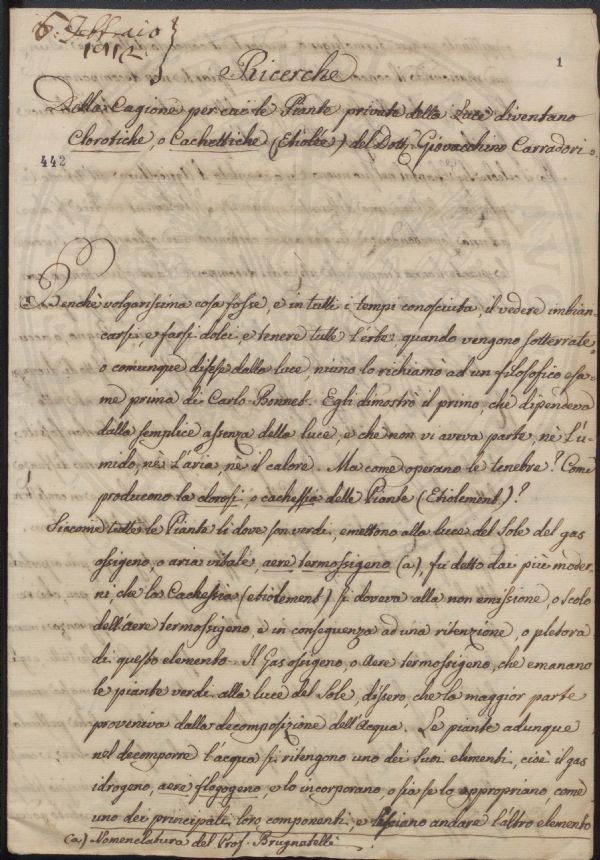 6. Febbraio
1812.
1
Ricerche
Della Cagione per cui le Piante private della Luce diventano
Clorotiche, o Cachettiche (Etiolée) del Dott. Giovacchino Carradori.
442
Benchè volgarissima cosa fosse, e in tutti i tempi conosciuta, il vedere imbian-
carsi e farsi dolci e tenere tutte l'erbe quando vengono sotterrate,
o comunque difese dalla luce, niuno lo richiamò ad un filosofico esa-
me prima di Carlo Bonnet. Egli dimostrò il primo, che dipendeva
dalla semplice assenza della luce, e che non vi aveva parte, nè l'u-
mido, nè l'aria, nè il calore. Ma come operano le tenebre? Come
producono la clorosi, o cachessia delle Piante (Etiolement)?
Siccome tutte le Piante li dove son verdi, emettono alla luce del Sole del gas
ossigeno, o aria vitale, aere termossigeno (a), fu detto dai più moder-
ni che la Cachessia (etiolement) si doveva alla non emissione, o scolo
dell'aere termossigeno, e in conseguenza ad una ritenzione, o pletora
di questo elemento. Il Gas ossigeno, o Aere termossigeno, che emanano
le piante verdi alla luce del Sole, dissero, che la maggior parte
proveniva dalla decomposizione dell'Acqua. Le piante adunque
nel decomporre l'acqua si ritengono uno dei suoi elementi, cioè il gas
idrogeno, aere flogogeno, e lo incorporano o sia se lo appropriano come
uno dei principali loro componenti, e lasciano andare l'altro elemento
(a) Nomenclatura del Prof. Brugnatelli.